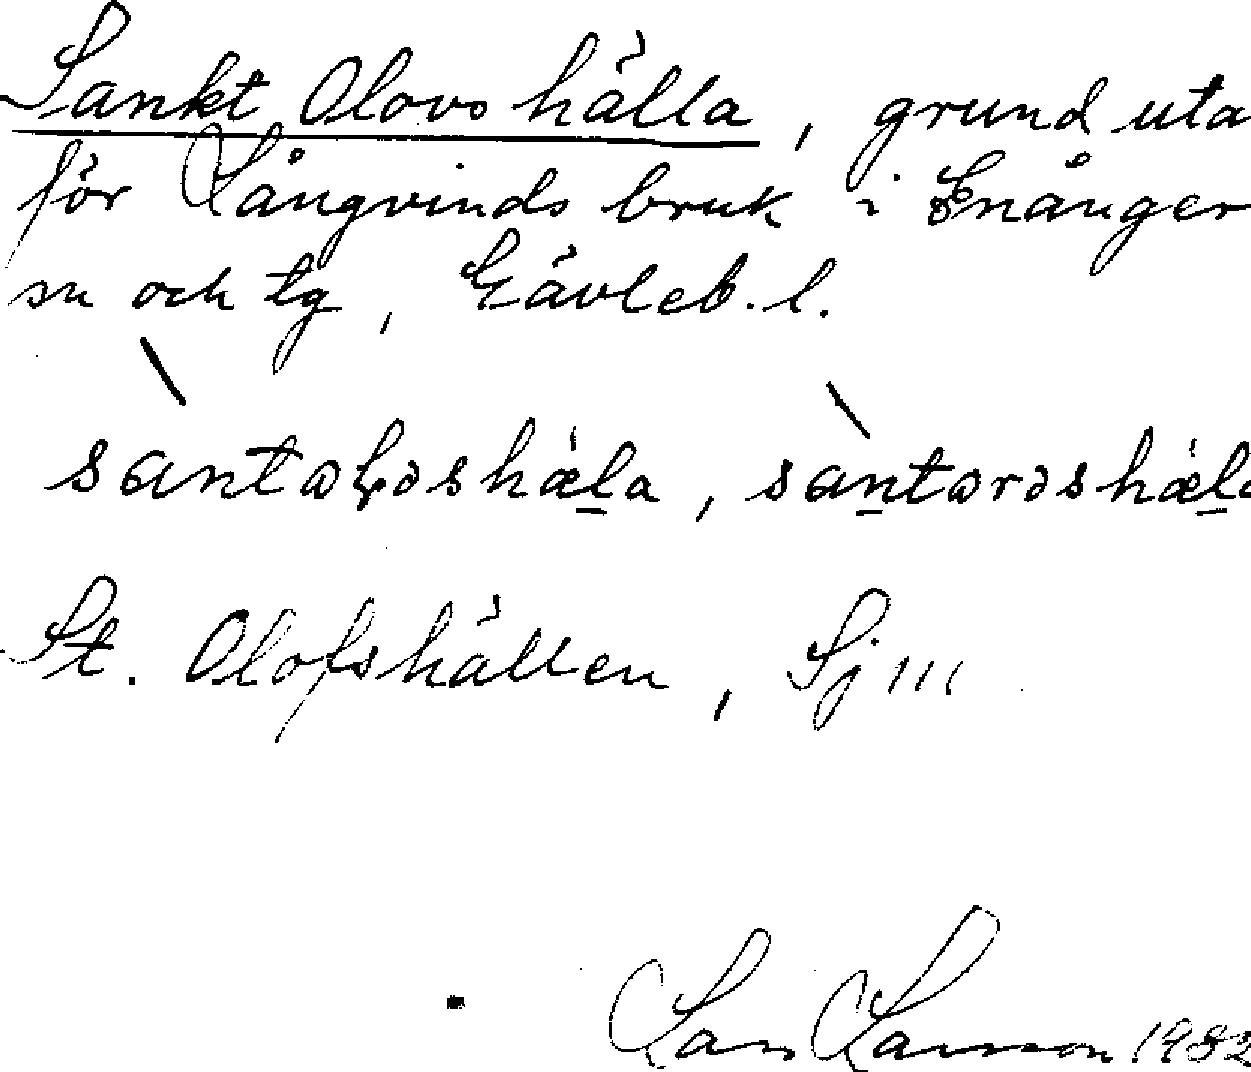 Sankt Olovs hälla, grund uta
för Långvinds bruk i Enånger
sn och tg, Gävleb. l.
santaɽəshæla, santarəshæla
St. Olofshällen, Sj 111
Lars Larsson 1982